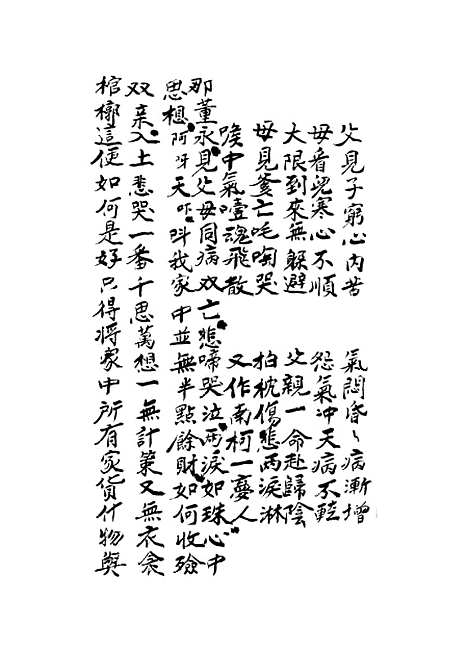 父見子窮心內苦　氣悶昏々病漸增
母看兒寒心不順　怨氣冲天病不輕
大限到來無躲避　父親一命赴歸陰
母見爹亡吒啕哭　拍枕傷悲兩淚淋
喉中氣噎魂飛散　又作南柯一夢人
那董永見父母同病双亡悲啼哭泣兩淚如珠心中
思想阿呀天吓吽我家中並無半點餘財如何收殮
双亲入土悲哭一番千思萬想一無計策又無衣衾
棺槨這便如何是好只得將家中所有家貨什物與